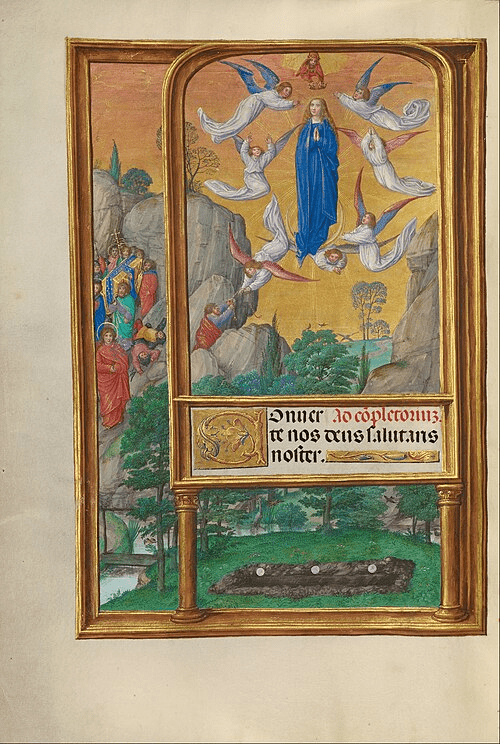 COnuer Ad cõpletoriuz.
te nos deus salutaris
noster.